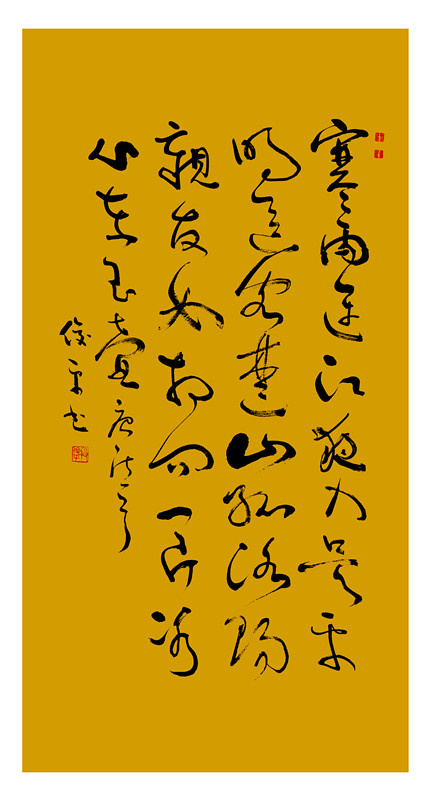 寒雨連江夜入吴平
明送客楚山孤洛陽
親友如相問一片冰
心在玉壺唐诗一首
俊平书